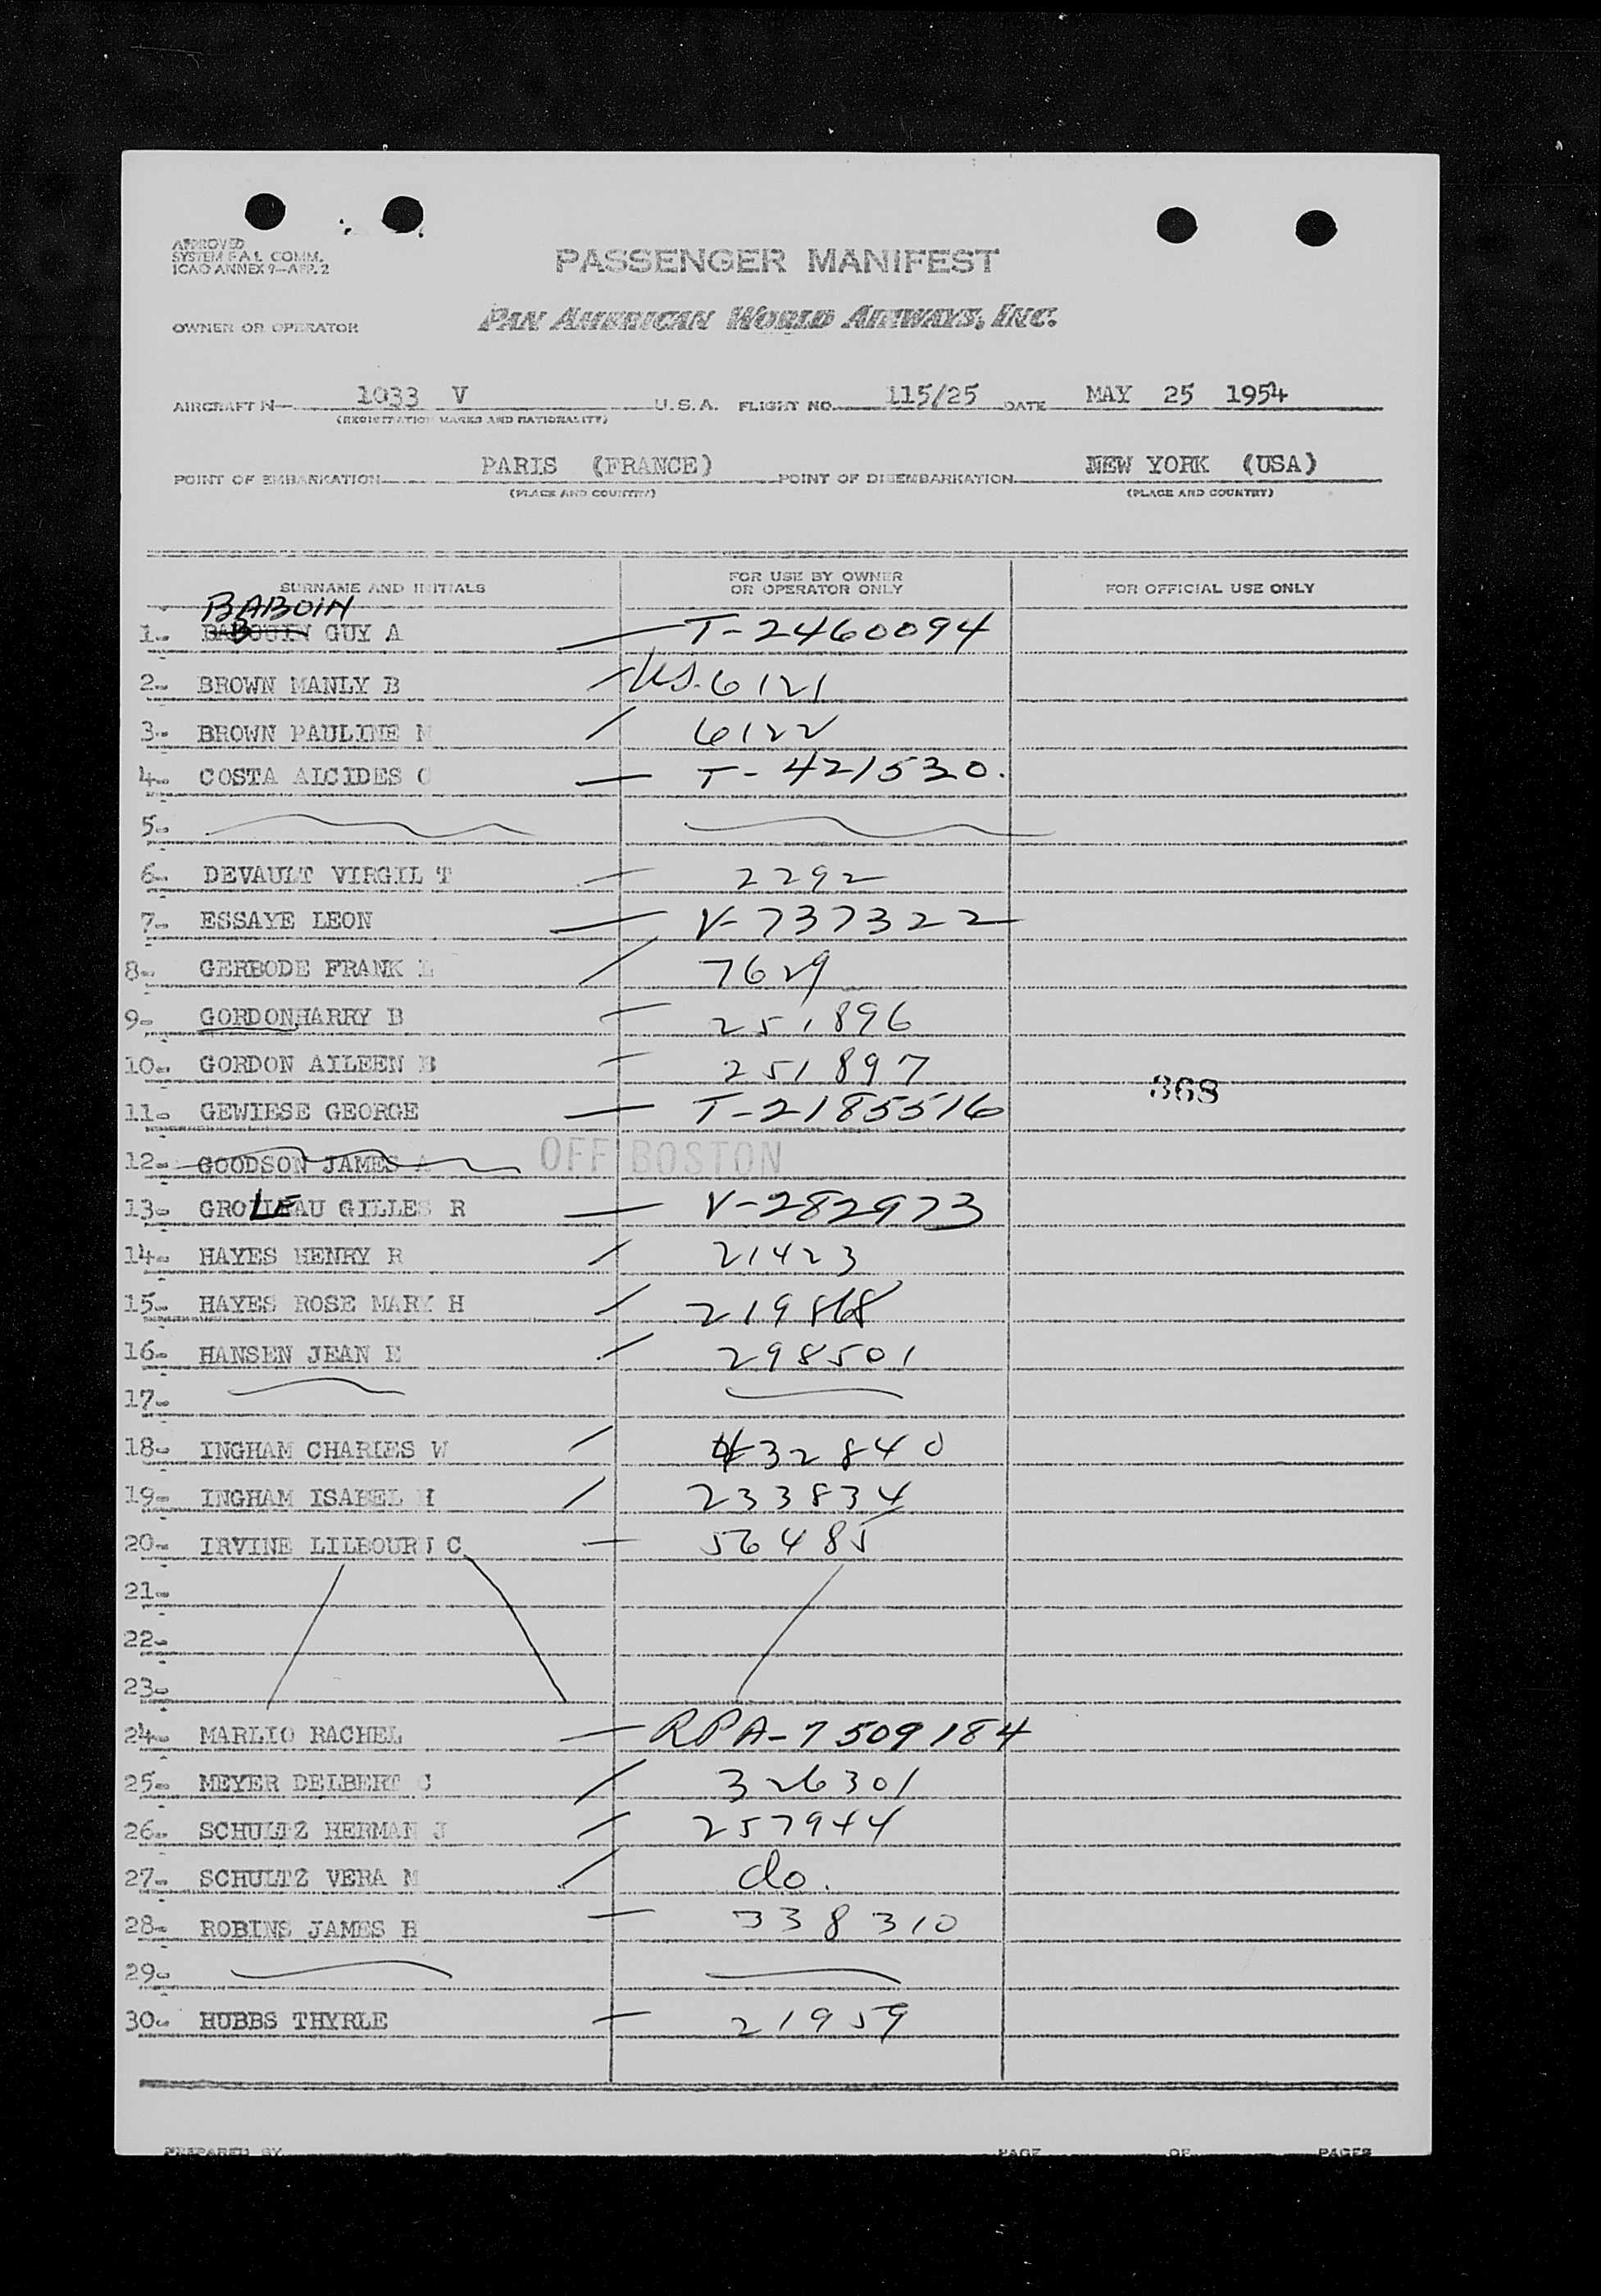 APPROVED
SYSTEM F.A.L. COMM.
ICAO ANNEX 9—APP. 2
PASSENGER MANIFEST
OWNER OR OPERATOR PAN AMERICAN WORLD AIRWAYS, INC.
AIRCRAFT N— 1033 V U.S.A. FLIGHT NO. 115/25 DATE MAY 25 1954
(REGISTRATION MARKS AND NATIONALITY)
POINT OF EMBARKATION PARIS (FRANCE) POINT OF DISEMBARKATION NEW YORK (USA)
(PLACE AND COUNTRY) (PLACE AND COUNTRY)
SURNAME AND INITIALS FOR USE BY OWNER OR OPERATOR ONLY FOR OFFICIAL USE ONLY
BABOIN
1- BABOUIN GUY A T-2460094
2- BROWN MANLY B US. 6121
3- BROWN PAULINE M 6122
4- COSTA ALCIDES C T-421530.
5-
6- DEVAULT VIRGIL T 2292
7- ESSAYE LEON V-737322
8- GERBODE FRANK L 7629
9- GORDON,HARRY B 251896
10- GORDON AILEEN B 251897
368
11- GEWIESE GEORGE T-2185516
12- GOODSON JAMES A OFF BOSTON
13- GROLEAU GILLES R V-282973
14- HAYES HENRY R 21423
15- HAYES ROSE MARY H 219868
16- HANSEN JEAN E 298501
17-
18- INGHAM CHARLES W 432840
19- INGHAM ISABEL H 233834
20- IRVINE LILBOURN C 56485
21-
22-
23-
24- MARLIO RACHEL RPA-7509184
25- MEYER DELBERT C 326301
26- SCHULTZ HERMAN J 257944
27- SCHULTZ VERA M do.
28- ROBINS JAMES H 338310
29-
30- HUBBS THYRLE 21959
PREPARED BY PAGE OF PAGES